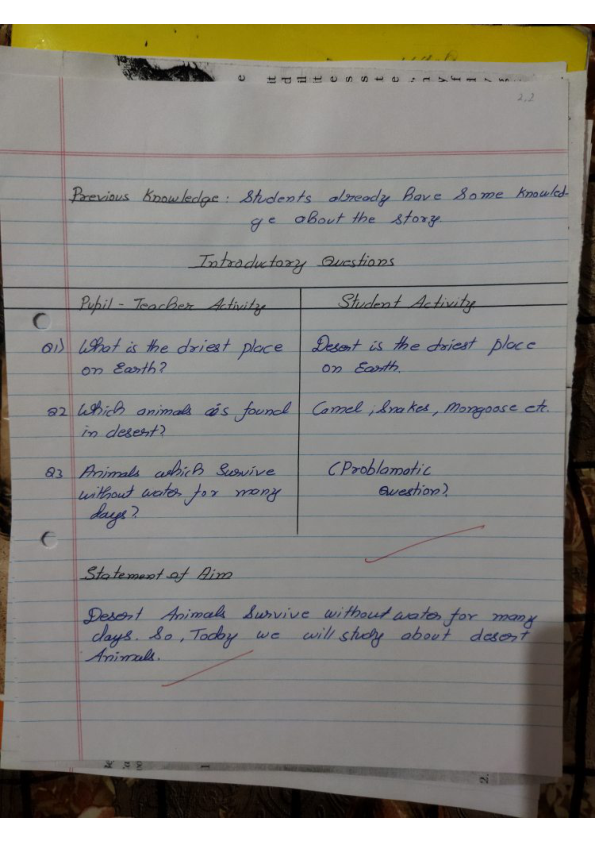 2.2
Previous Knowledge: Students already have some knowled-
ge about the story.
Introductory Questions
Pupil - Teacher Activity
Student Activity
Q1) What is the driest place
on Earth?
Desert is the driest place
on Earth.
Q2 Which animals is found
in desert?
Camel, Snakes, Mongoose etc.
Q3 Animals which Survive
without water for many
days?
(Problamatic
Question).
Statement of Aim
Desert Animals Survive without water for many
days. So, Today we will study about desert
Animals.